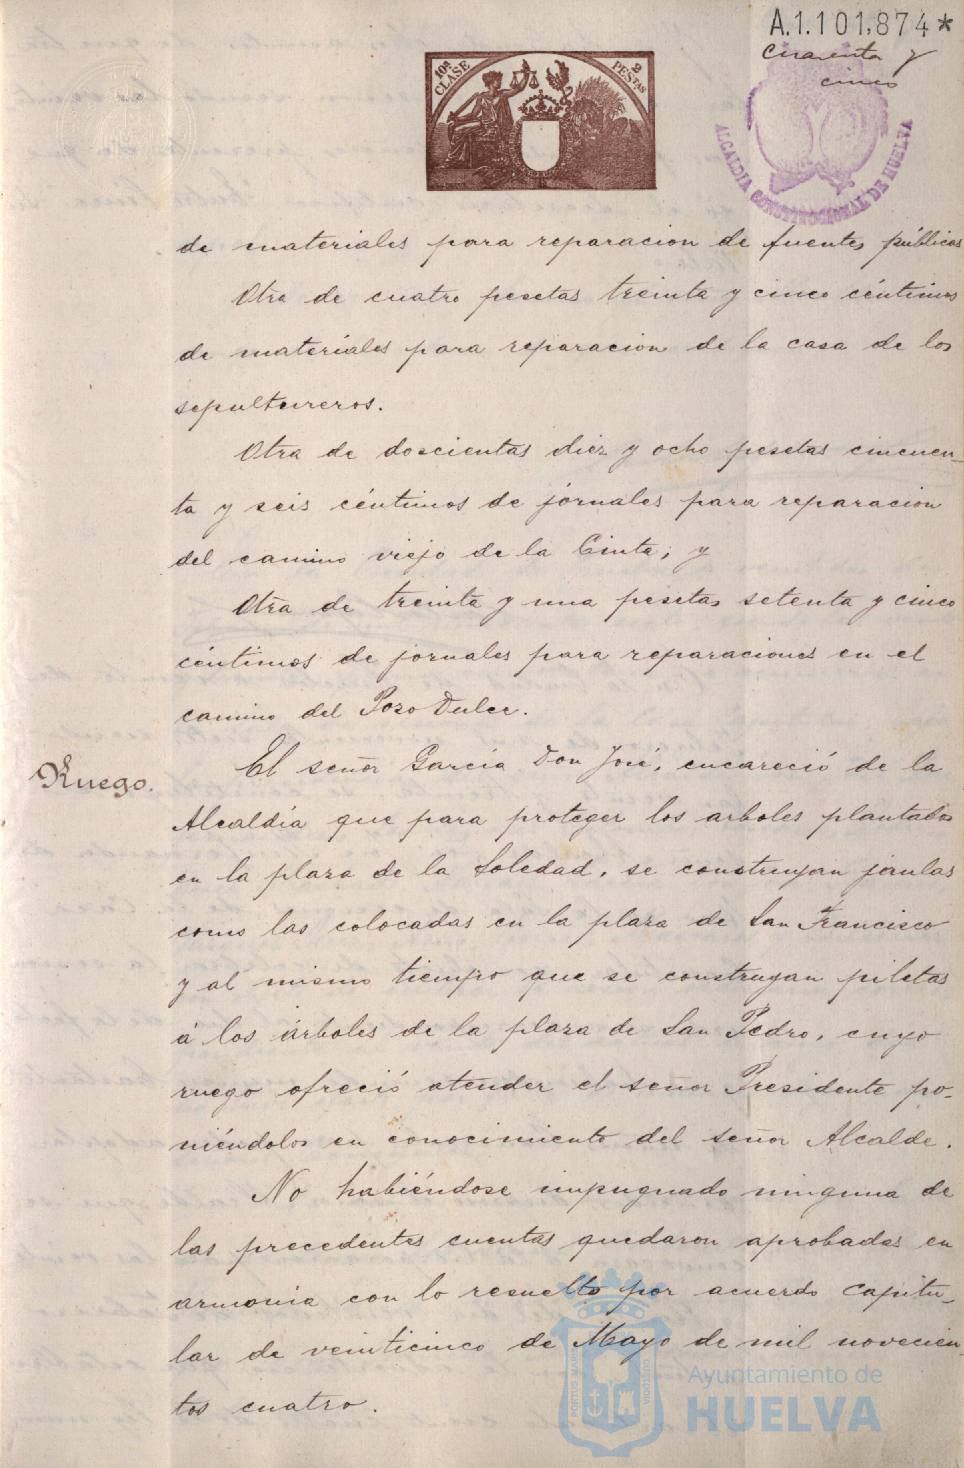 A.1.101,874*
cuarenta y
cinco
10ª CLASE
2 PESTAS
ALCALDIA CONSTITUCIONAL DE HUELVA
de materiales para reparacion de fuentes públicas
Otra de cuatro pesetas treinta y cinco céntimos
de materiales para reparacion de la casa de los
sepultureros.
Otra de doscientas diez y ocho pesetas cincuen-
ta y seis céntimos de jornales para reparacion
del camino viejo de la Cinta; y
Otra de treinta y una pesetas setenta y cinco
céntimos de jornales para reparaciones en el
camino del Pozo Dulce.
Ruego.
El señor García Don José, encareció de la
Alcaldía que para proteger los arboles plantados
en la plaza de la Soledad, se construyan jaulas
como las colocadas en la plaza de San Francisco
y al mismo tiempo que se construyan piletas
á los árboles de la plaza de San Pedro, cuyo
ruego ofreció atender el señor Presidente po-
niéndolos en conocimiento del señor Alcalde.
No habiéndose impugnado ninguna de
las precedentes cuentas quedaron aprobadas en
armonia con lo resuelto por acuerdo capitu-
lar de veinticinco de Mayo de mil novecien-
tos cuatro.
PORTUS MARIS
CUSTODIA
Ayuntamiento de
HUELVA